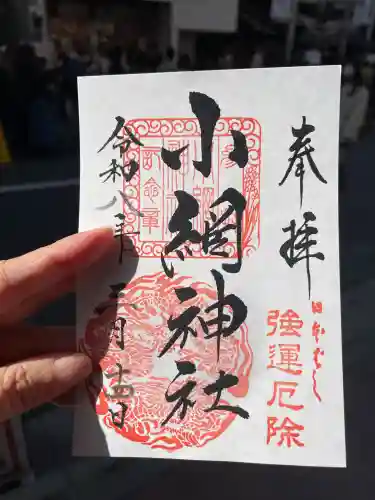 奉拝
日本ばし
強運厄除
小網神社
令和八年三月十四日